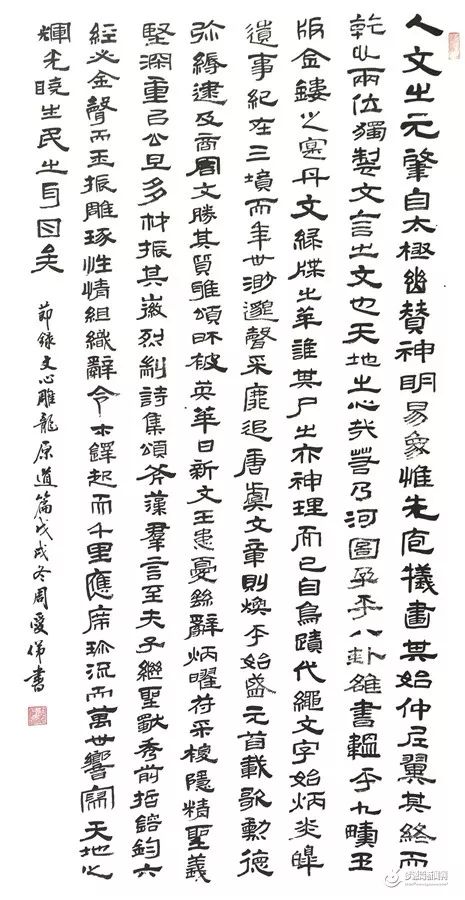 人文之元肇自太極幽贊神明易象惟先庖犧畫其始仲尼翼其終而
乾坤兩位獨製文言之文也天地之心哉若乃河圖孕乎八卦雒書韞乎九疇玉
版金鏤之實丹文綠牒之華誰其尸之亦神理而已自鳥蹟代繩文字始炳炎皞
遺事紀在三墳而年世渺邈聲采靡追唐虞文章則煥乎始盛元首載歌勳德
彌縟逮及商周文勝其質雅頌所被英華日新文王患憂繇辭炳曜符采複隱精聖義
堅深重以公旦多材振其徽烈詩集頌斧藻羣言至夫子繼聖獨秀前哲鎔鈞六
經必金聲而玉振雕琢性情組織辭令木鐸起而千里應席珍流而萬世響寫天地之
輝光曉生民之耳目矣
節錄文心雕龍原道篇戊戌冬周愛書